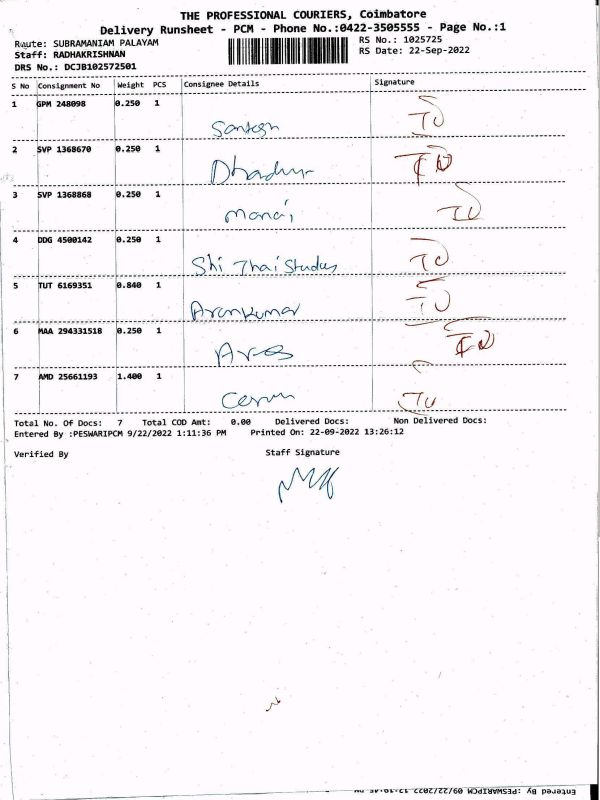 THE PROFESSIONAL COURIERS, Coimbatore
Delivery Runsheet - PCM - Phone No.:0422-3505555 - Page No.:1
Route: SUBRAMANIAM PALAYAM RS No.: 1025725
Staff: RADHAKRISHNAN RS Date: 22-Sep-2022
DRS No.: DCJB102572501
S No Consignment No Weight PCS Consignee Details Signature
1 GPM 248098 0.250 1
Santosh
2 SVP 1368670 0.250 1
3 SVP 1368868 0.250 1
4 DDG 4500142 0.250 1
Shi Thai Studus
5 TUT 6169351 0.840 1
Arunkumar
6 MAA 294331518 0.250 1
7 AMD 25661193 1.400 1
Total No. Of Docs: 7 Total COD Amt: 0.00 Delivered Docs: Non Delivered Docs:
Entered By :PESWARIPCM 9/22/2022 1:11:36 PM Printed On: 22-09-2022 13:26:12
Verified By Staff Signature